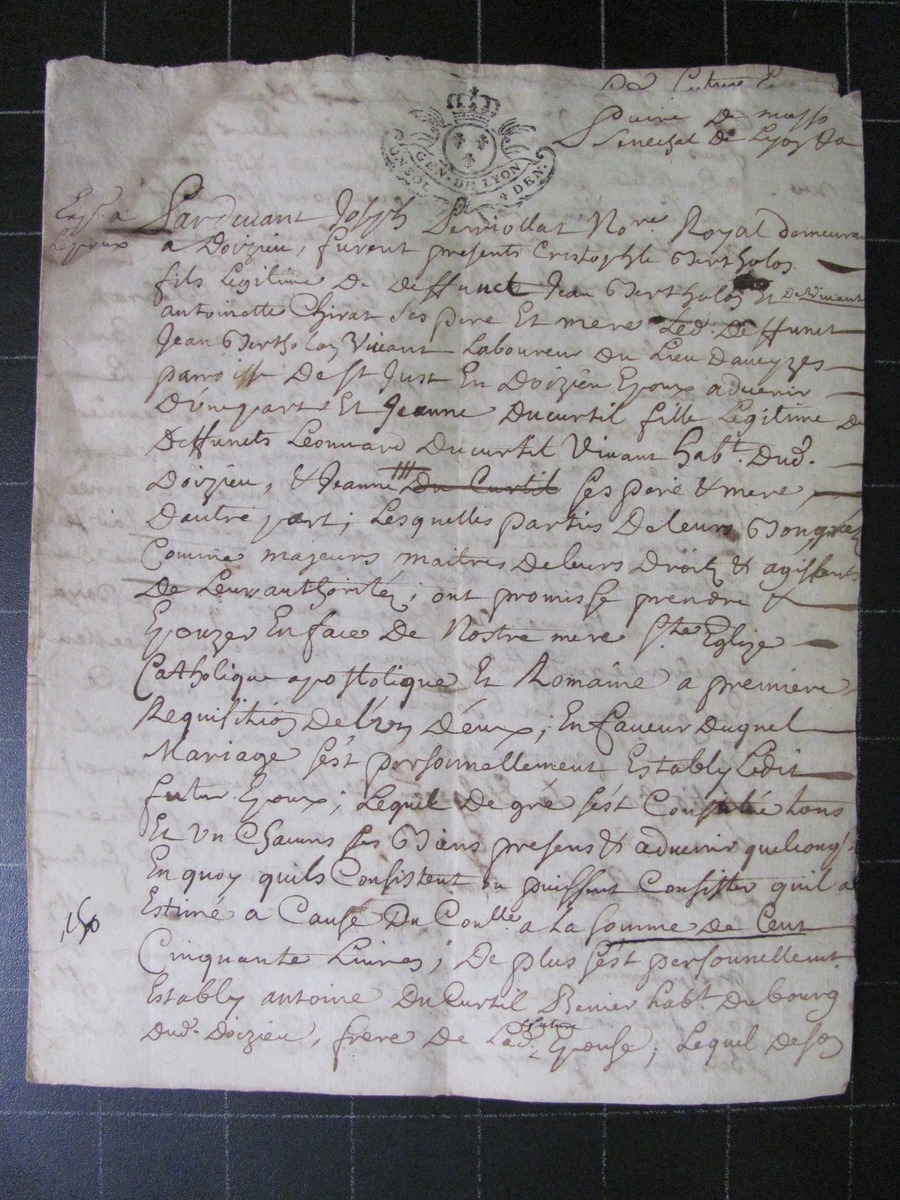 GEN. DE LYON
4 DEN.
Senechal de Lyon
Exp.e a
Lepoux
Pardevant Joseph Perriollat No.re Royal demeurant
a Doizieu, furent presents Cristophle Bertholos
fils Legitime De Deffunct Jean Bertholos Et De Vivant
antoinette Chirat ses pere Et mere Led. Deffunct
Jean Bertholos Vivant Laboureur du Lieu Daveyzes
parroisse De st Just En Doizieu Epoux advenir
D'Une part Et Jeanne Ducurtil fille Legitime De
Deffuncts Leonnard Ducurtil Vivant hab.t Dud.
Doizieu, & Jeanne du Curtil ses pere & mere
Dautre part; Lesquelles parties De leurs Bongrés
Comme majeurs maitres De leurs Droits & agissants
De Leur authorités; ont promis se prendre &
Epouzer En face De Nostre mere s.te Eglize
Catholique apostolique Et Romaine a premiere
Requisition De l'Un D'eux; En faveur Duquel
Mariage s'est personnellement Estably Ledit
futur Epoux; Lequel De gré s'est Constitué tous
Et Un Chacuns ses Biens presens & advenir quelconq.
En quoy quils Consistent ou puissent Consister quil a
Estimé a Cause Du Coulle a La somme de Cent
150
Cinquante Livres; De plus s'est personnellemt
Estably antoine Du Curtil hab.t Du bourg
Dud. Doizieu, frere De Lad. future Epouse; Lequel De son